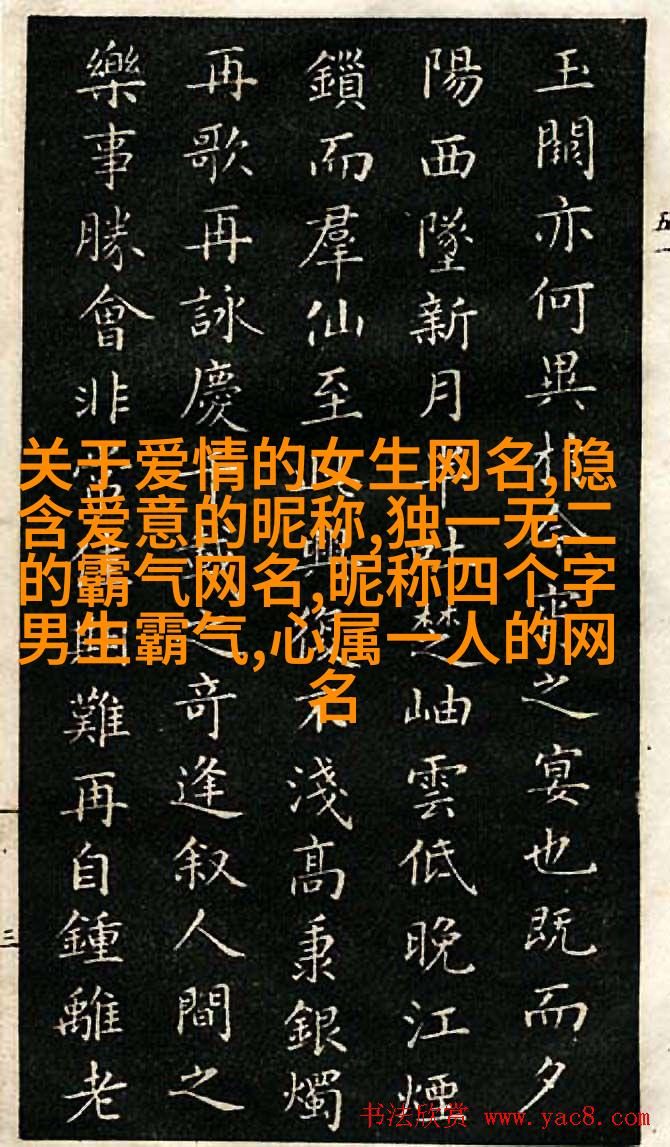 玉闕亦何異於今宵之宴也既而夕
陽西墜新月半吐楚岫雲低晚江煙
鎖而羣仙至此興復不淺高秉銀燭
再歌再詠慶千載之奇逢叙人間之
樂事勝會非常佳期難再自鍾離老
关于爱情的女生网名,隐
含爱意的昵称,独一无二
的霸气网名,昵称四个字
男生霸气,心属一人的网
名
五
三
书法欣赏 www.yac8.com